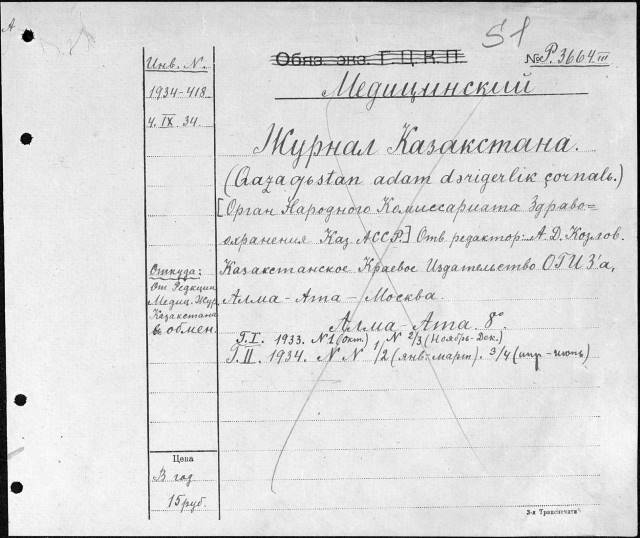 А
51
Обяз. экз. Г.Ц.К.П.
№ Р.3664 III
Инв. N.
1934-418
4.IX.34.
Медицинский
Журнал Казакстана.
(Qazaqьstan adam dәrigerlik çоrnalь.)
[Орган Народного Комиссариата Здраво=
охранения Каз. АССР.] Отв. редактор: А.Д. Козлов.
Казакстанское Краевое Издательство ОГИЗ'а,
Алма-Ата - Москва.
Алма-Ата. 8°.
Г.I. 1933. N1 (окт.) N 2/3 (Ноябрь-Дек.)
Г.II. 1934. N N 1/2 (янв-март). 3/4 (апр-июнь)
Откуда:
От Редкции
Медиц. Жур.
Казакстана
в обмен.
Цена
В год
15 руб.
3-я Транспечати